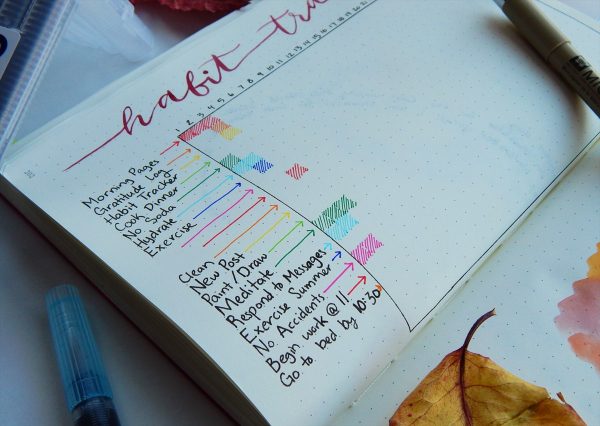 habit
1 2 3 4 5 6 7 8 9 10 11 12 13 14 15 16 17 18 19 20 21
Morning Pages
Gratitude Log
Habit Tracker
Cook Dinner
No Soda
Hydrate
Exercise
Clean
New Post
Paint/Draw
Meditate
Respond to Messages
Exercise Summer
No Accidents
Begin work @ 11
Go to bed by 10:30